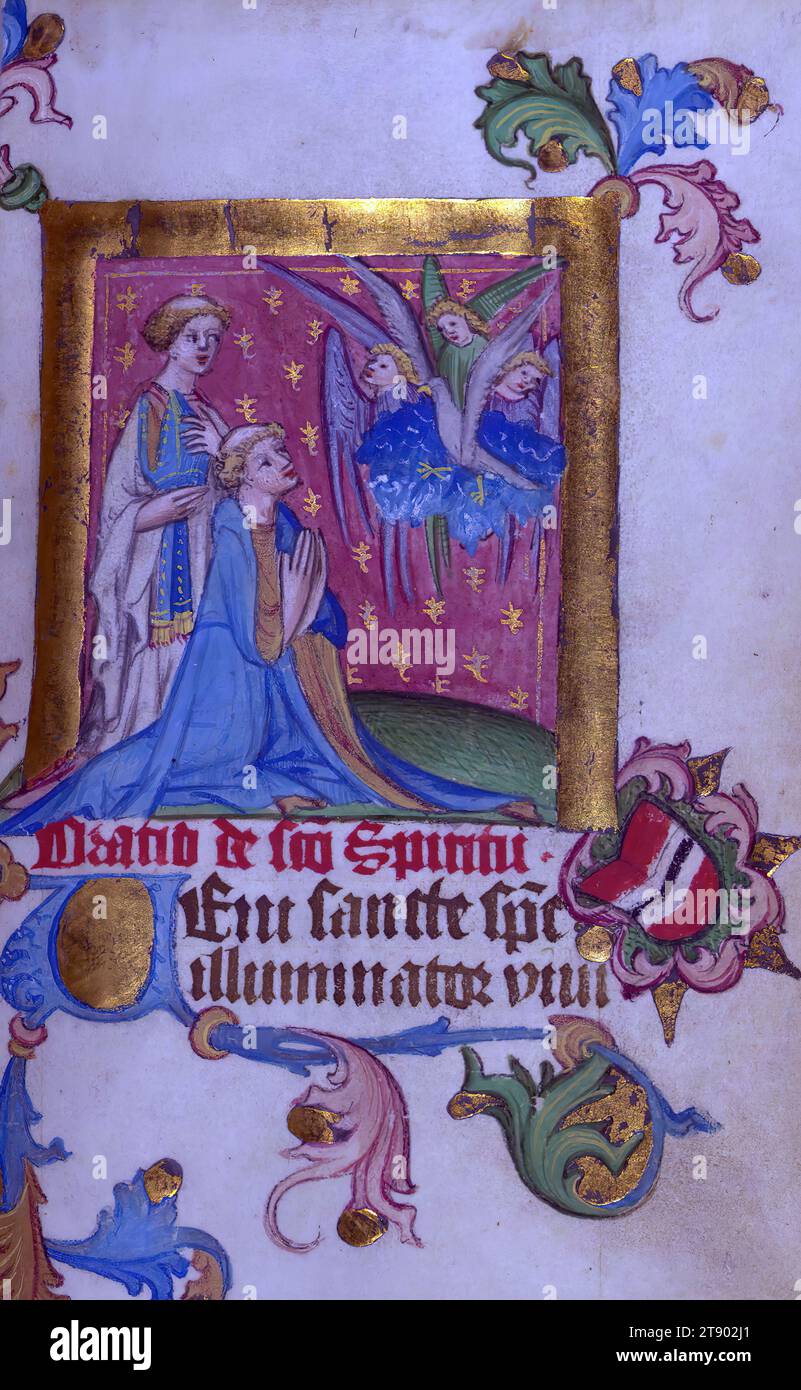 Oratio de sco Spiritu.
Veni sancte spe
illuminator viui
alamy
Image ID: 2T902J1
www.alamy.com